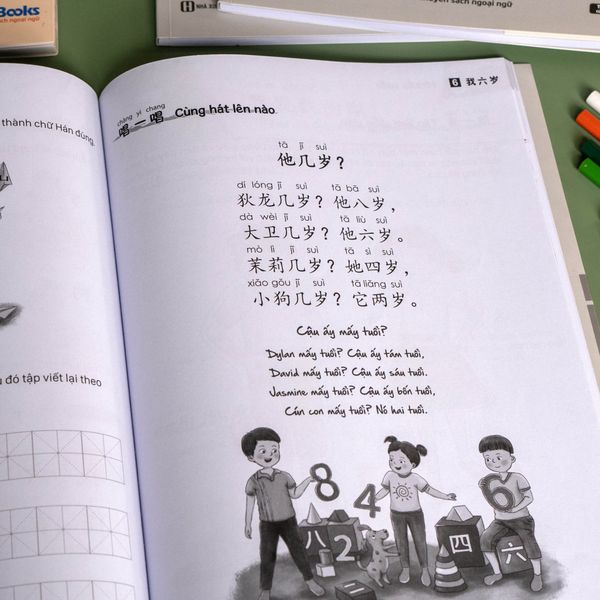 Books
sách ngoại ngữ
sách ngoại ngữ
thành chữ Hán đúng.
đó tập viết lại theo
6 我六岁
chàng yì chang
唱一唱 Cùng hát lên nào.
tā jǐ suì
他几岁？
dí lóng jǐ suì tā bā suì
狄龙几岁？他八岁，
dà wèi jǐ suì tā liù suì
大卫几岁？他六岁。
mò lì jǐ suì tā sì suì
茉莉几岁？她四岁，
xiǎo gǒu jǐ suì tā liǎng suì
小狗几岁？它两岁。
Cậu ấy mấy tuổi?
Dylan mấy tuổi? Cậu ấy tám tuổi,
David mấy tuổi? Cậu ấy sáu tuổi.
Jasmine mấy tuổi? Cậu ấy bốn tuổi,
Cún con mấy tuổi? Nó hai tuổi.
8 4 6
八 2 四 六
二